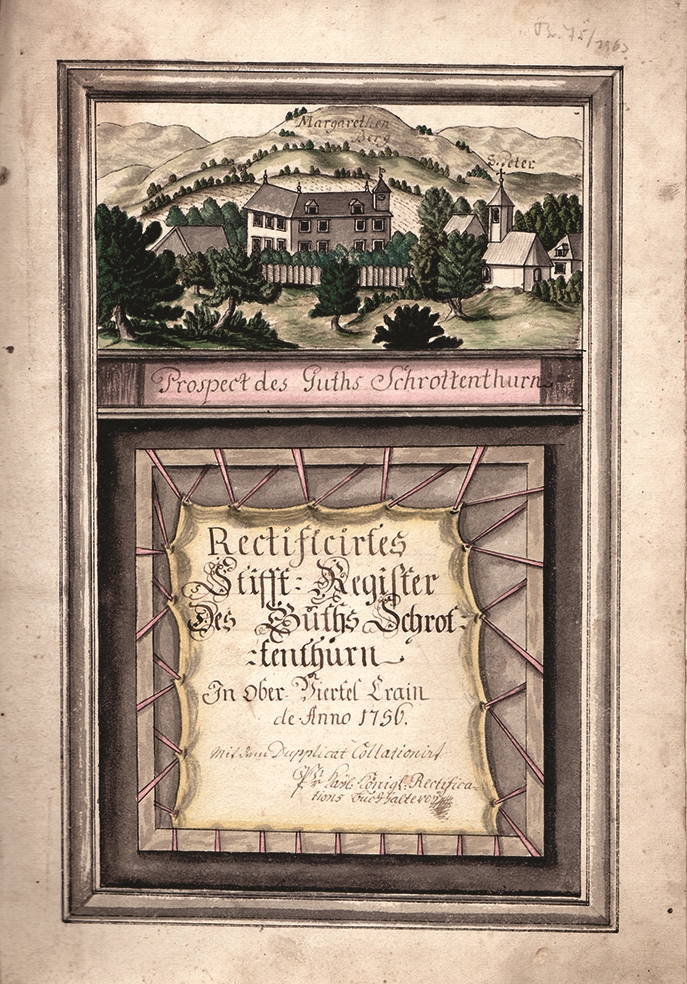 Br. 75/1963
Margarethen
Berg
S. Peter
Prospect des Guths Schrottenthurn
Rectificirtes
Stifft= Register
Des Guths Schrot=
=tenthurn
In Ober Viertel Crain
de Anno 1756.
Mit dem Dupplicat Collationirt
Königl. Rectifica-
tions Buchhalterey